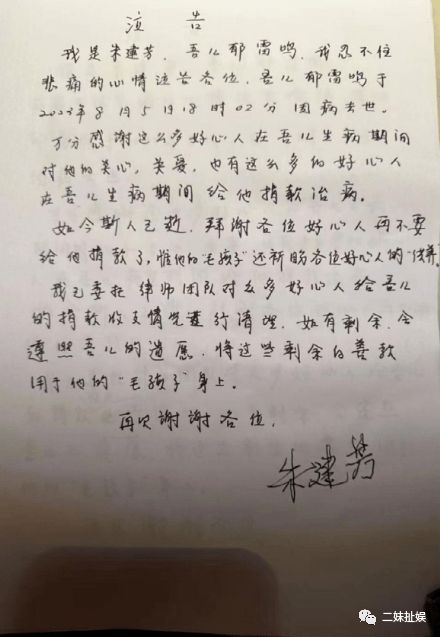 泣告
我是朱建芳，吾儿郁雷鸣，我忍不住
悲痛的心情泣告各位，吾儿郁雷鸣于
2023年8月5日18时02分因病去世。
万分感谢这么多好心人在吾儿生病期间
对他的关心，关爱，也有这么多的好心人
在吾儿生病期间给他捐款治病。
如今斯人已逝，拜谢各位好心人再不要
给他捐款了，惟他的"毛孩子"还祈盼各位好心人的"供养"
我已委托律师团队对众多好心人给吾儿
的捐款收支情况进行清理，如有剩余，会
遵照吾儿的遗愿，将这些剩余的善款
用于他的"毛孩子"身上。
再次谢谢各位，
朱建芳
二妹扯娱